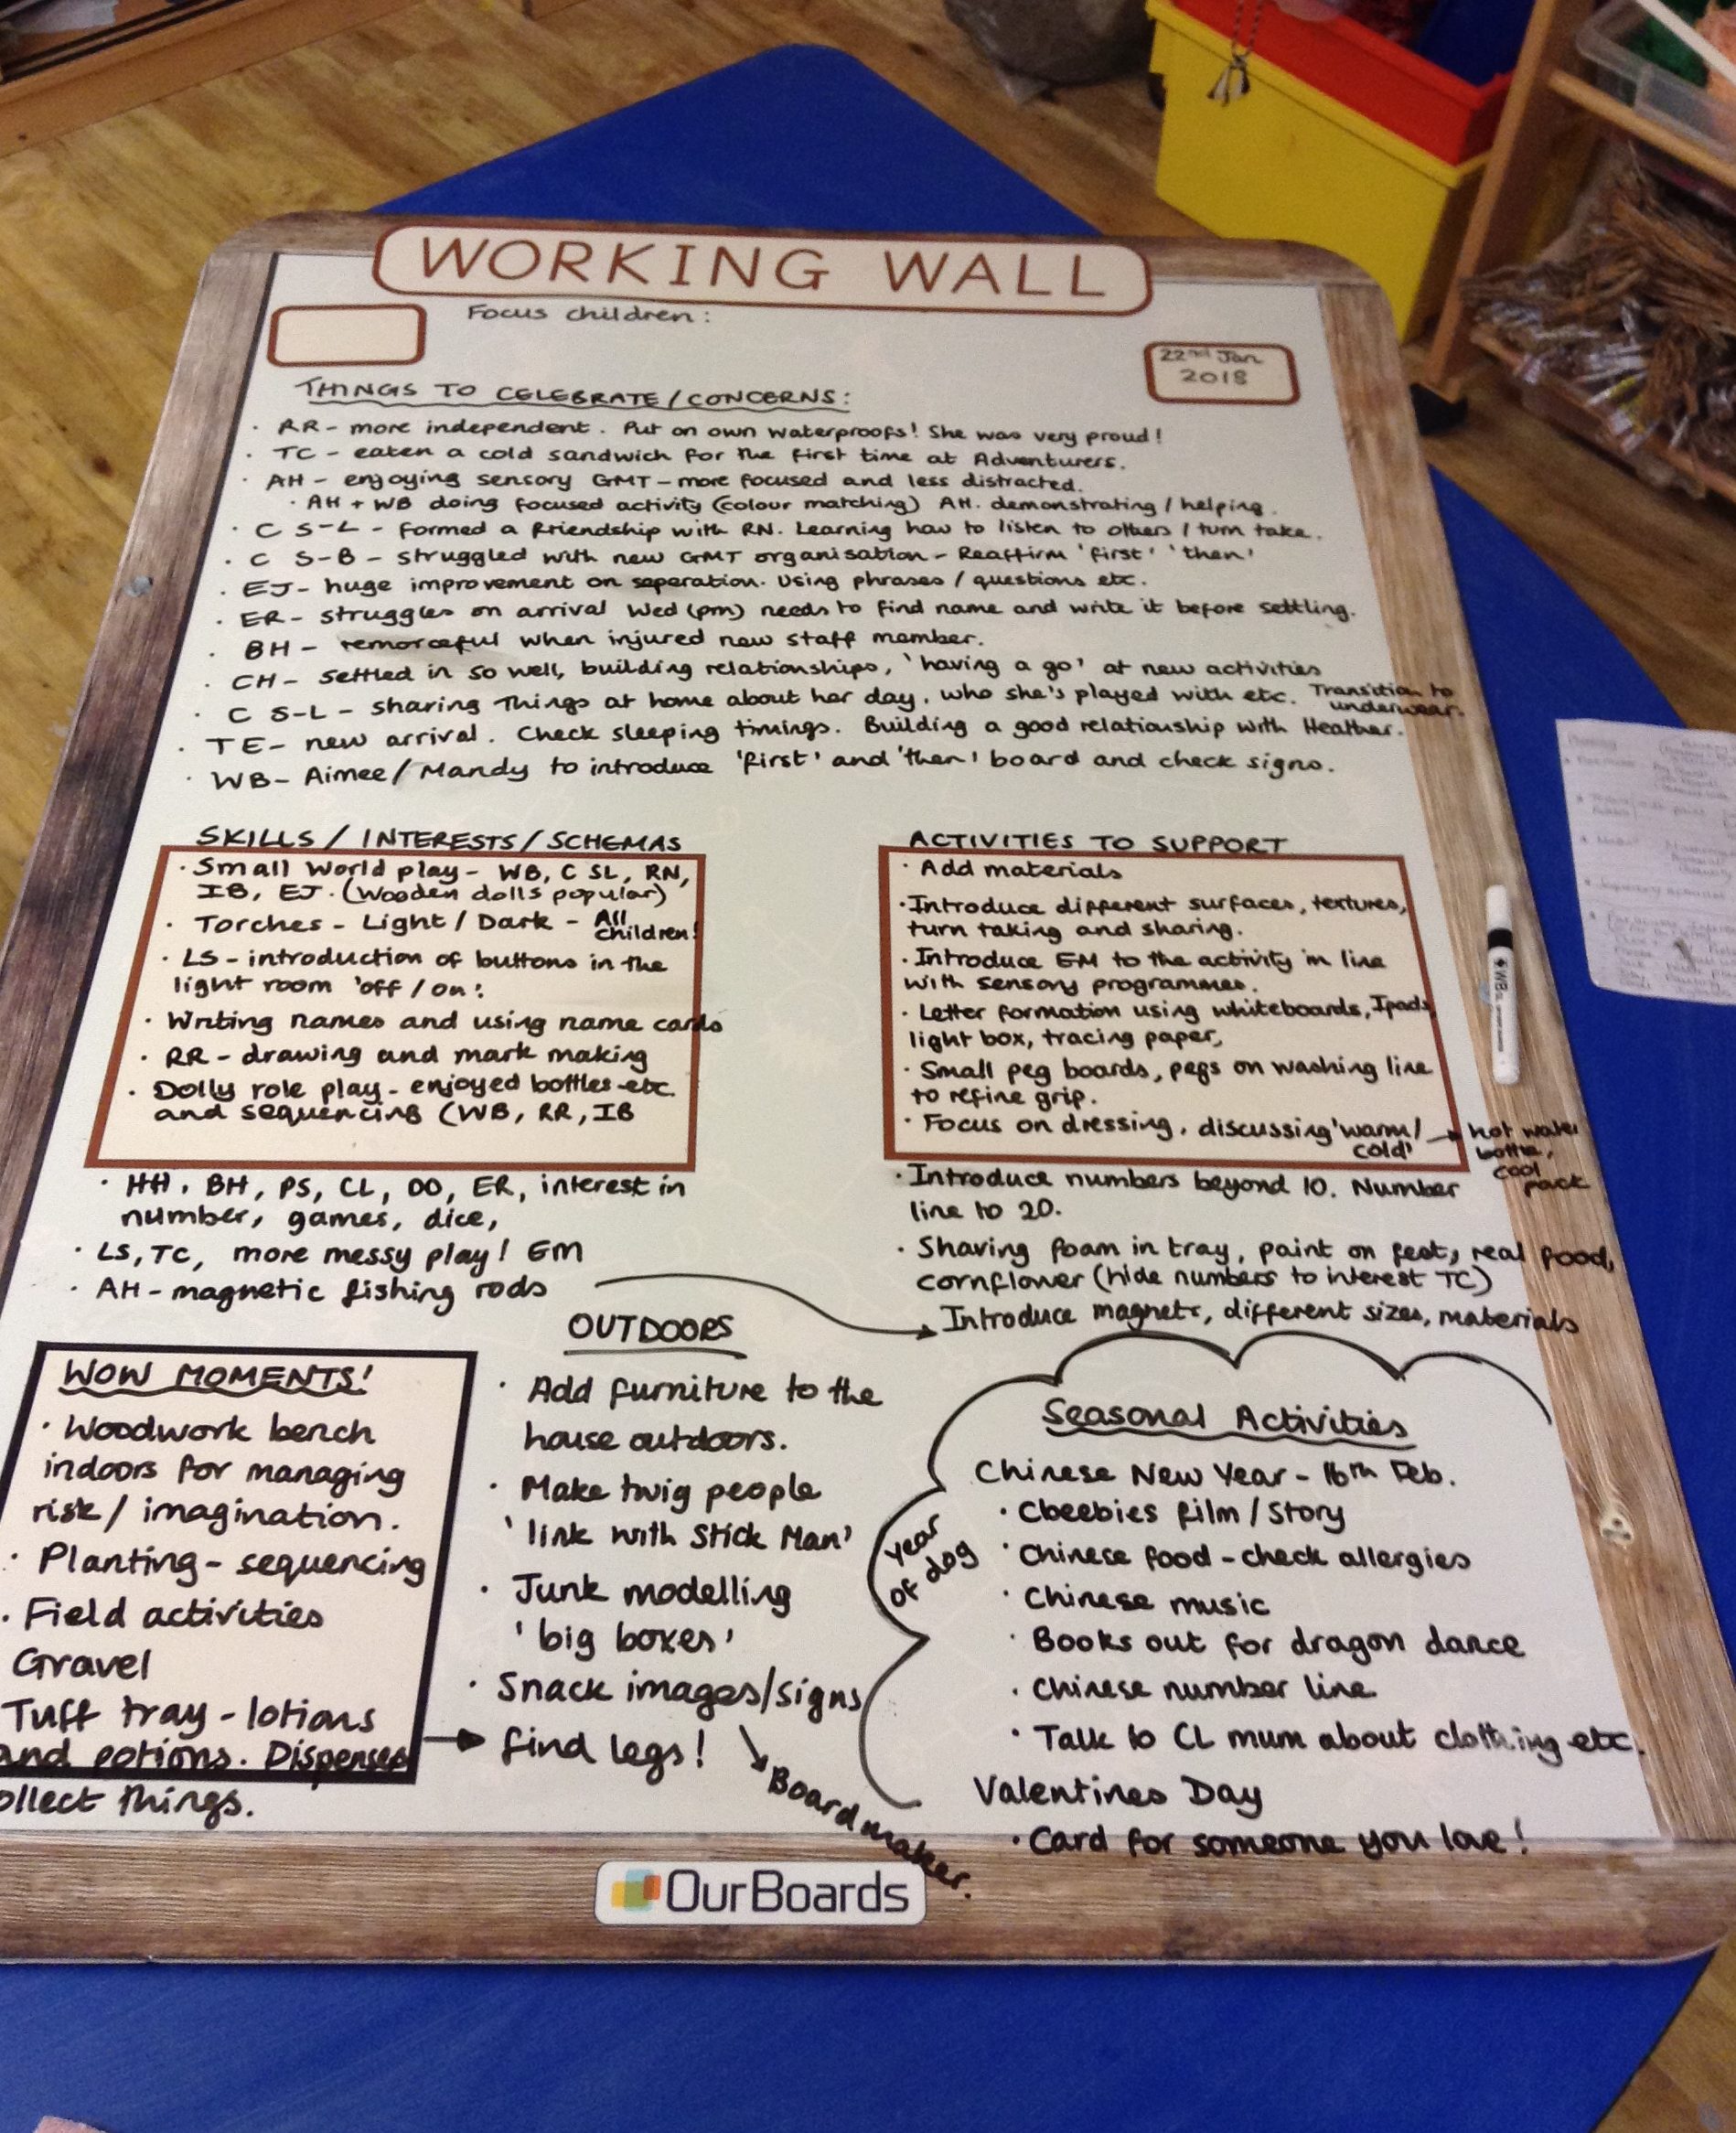 WORKING WALL
Focus children:
22nd Jan
2018
THINGS TO CELEBRATE / CONCERNS:
· RR - more independent. Put on own waterproofs! She was very proud!
· TC - eaten a cold sandwich for the first time at Adventurers.
· AH - enjoying sensory GMT - more focused and less distracted.
· AH + WB doing focused activity (colour matching) AH. demonstrating / helping.
· C S-L - formed a friendship with RN. Learning how to listen to others / turn take.
· C S-B - struggled with new GMT organisation - Reaffirm 'first' 'then'
· EJ - huge improvement on seperation. Using phrases / questions etc.
· ER - struggles on arrival Wed (pm) needs to find name and write it before settling.
· BH - remorceful when injured new staff member.
· CH - settled in so well, building relationships, 'having a go' at new activities
· C S-L - sharing things at home about her day, who she's played with etc. Transition to
underwear.
· TE - new arrival. Check sleeping timings. Building a good relationship with Heather.
· WB - Aimee / Mandy to introduce 'first' and 'then' board and check signs.
SKILLS / INTERESTS / SCHEMAS
· Small World play - WB, C SL, RN,
IB, EJ. (Wooden dolls popular)
· Torches - Light / Dark - All
children!
· LS - introduction of buttons in the
light room 'off / on'.
· Writing names and using name cards
· RR - drawing and mark making
· Dolly role play - enjoyed bottles etc.
and sequencing (WB, RR, IB
· HH, BH, PS, CL, DO, ER, interest in
number, games, dice,
· LS, TC, more messy play! EM
· AH - magnetic fishing rods
ACTIVITIES TO SUPPORT
· Add materials
· Introduce different surfaces, textures,
turn taking and sharing.
· Introduce EM to the activity in line
with sensory programmes.
· Letter formation using whiteboards, Ipads,
light box, tracing paper,
· Small peg boards, pegs on washing line
to refine grip.
· Focus on dressing, discussing 'warm /
cold'
hot water
bottle,
cool
pack
· Introduce numbers beyond 10. Number
line to 20.
· Shaving foam in tray, paint on feet, real food,
cornflower (hide numbers to interest TC)
Introduce magnets, different sizes, materials
WOW MOMENTS!
· Woodwork bench
indoors for managing
risk / imagination.
· Planting - sequencing
· Field activities
Gravel
Tuff tray - lotions
and potions. Dispenses
ollect things.
OUTDOORS
· Add furniture to the
house outdoors.
· Make twig people
'link with Stick Man'
· Junk modelling
'big boxes'
· Snack images/signs
find legs!
Boardmaker.
Seasonal Activities
Chinese New Year - 16th Feb.
year
of dog
· Cbeebies film / Story
· Chinese food - check allergies
· Chinese music
· Books out for dragon dance
· Chinese number line
· Talk to CL mum about clothing etc.
Valentines Day
· Card for someone you love!
OurBoards